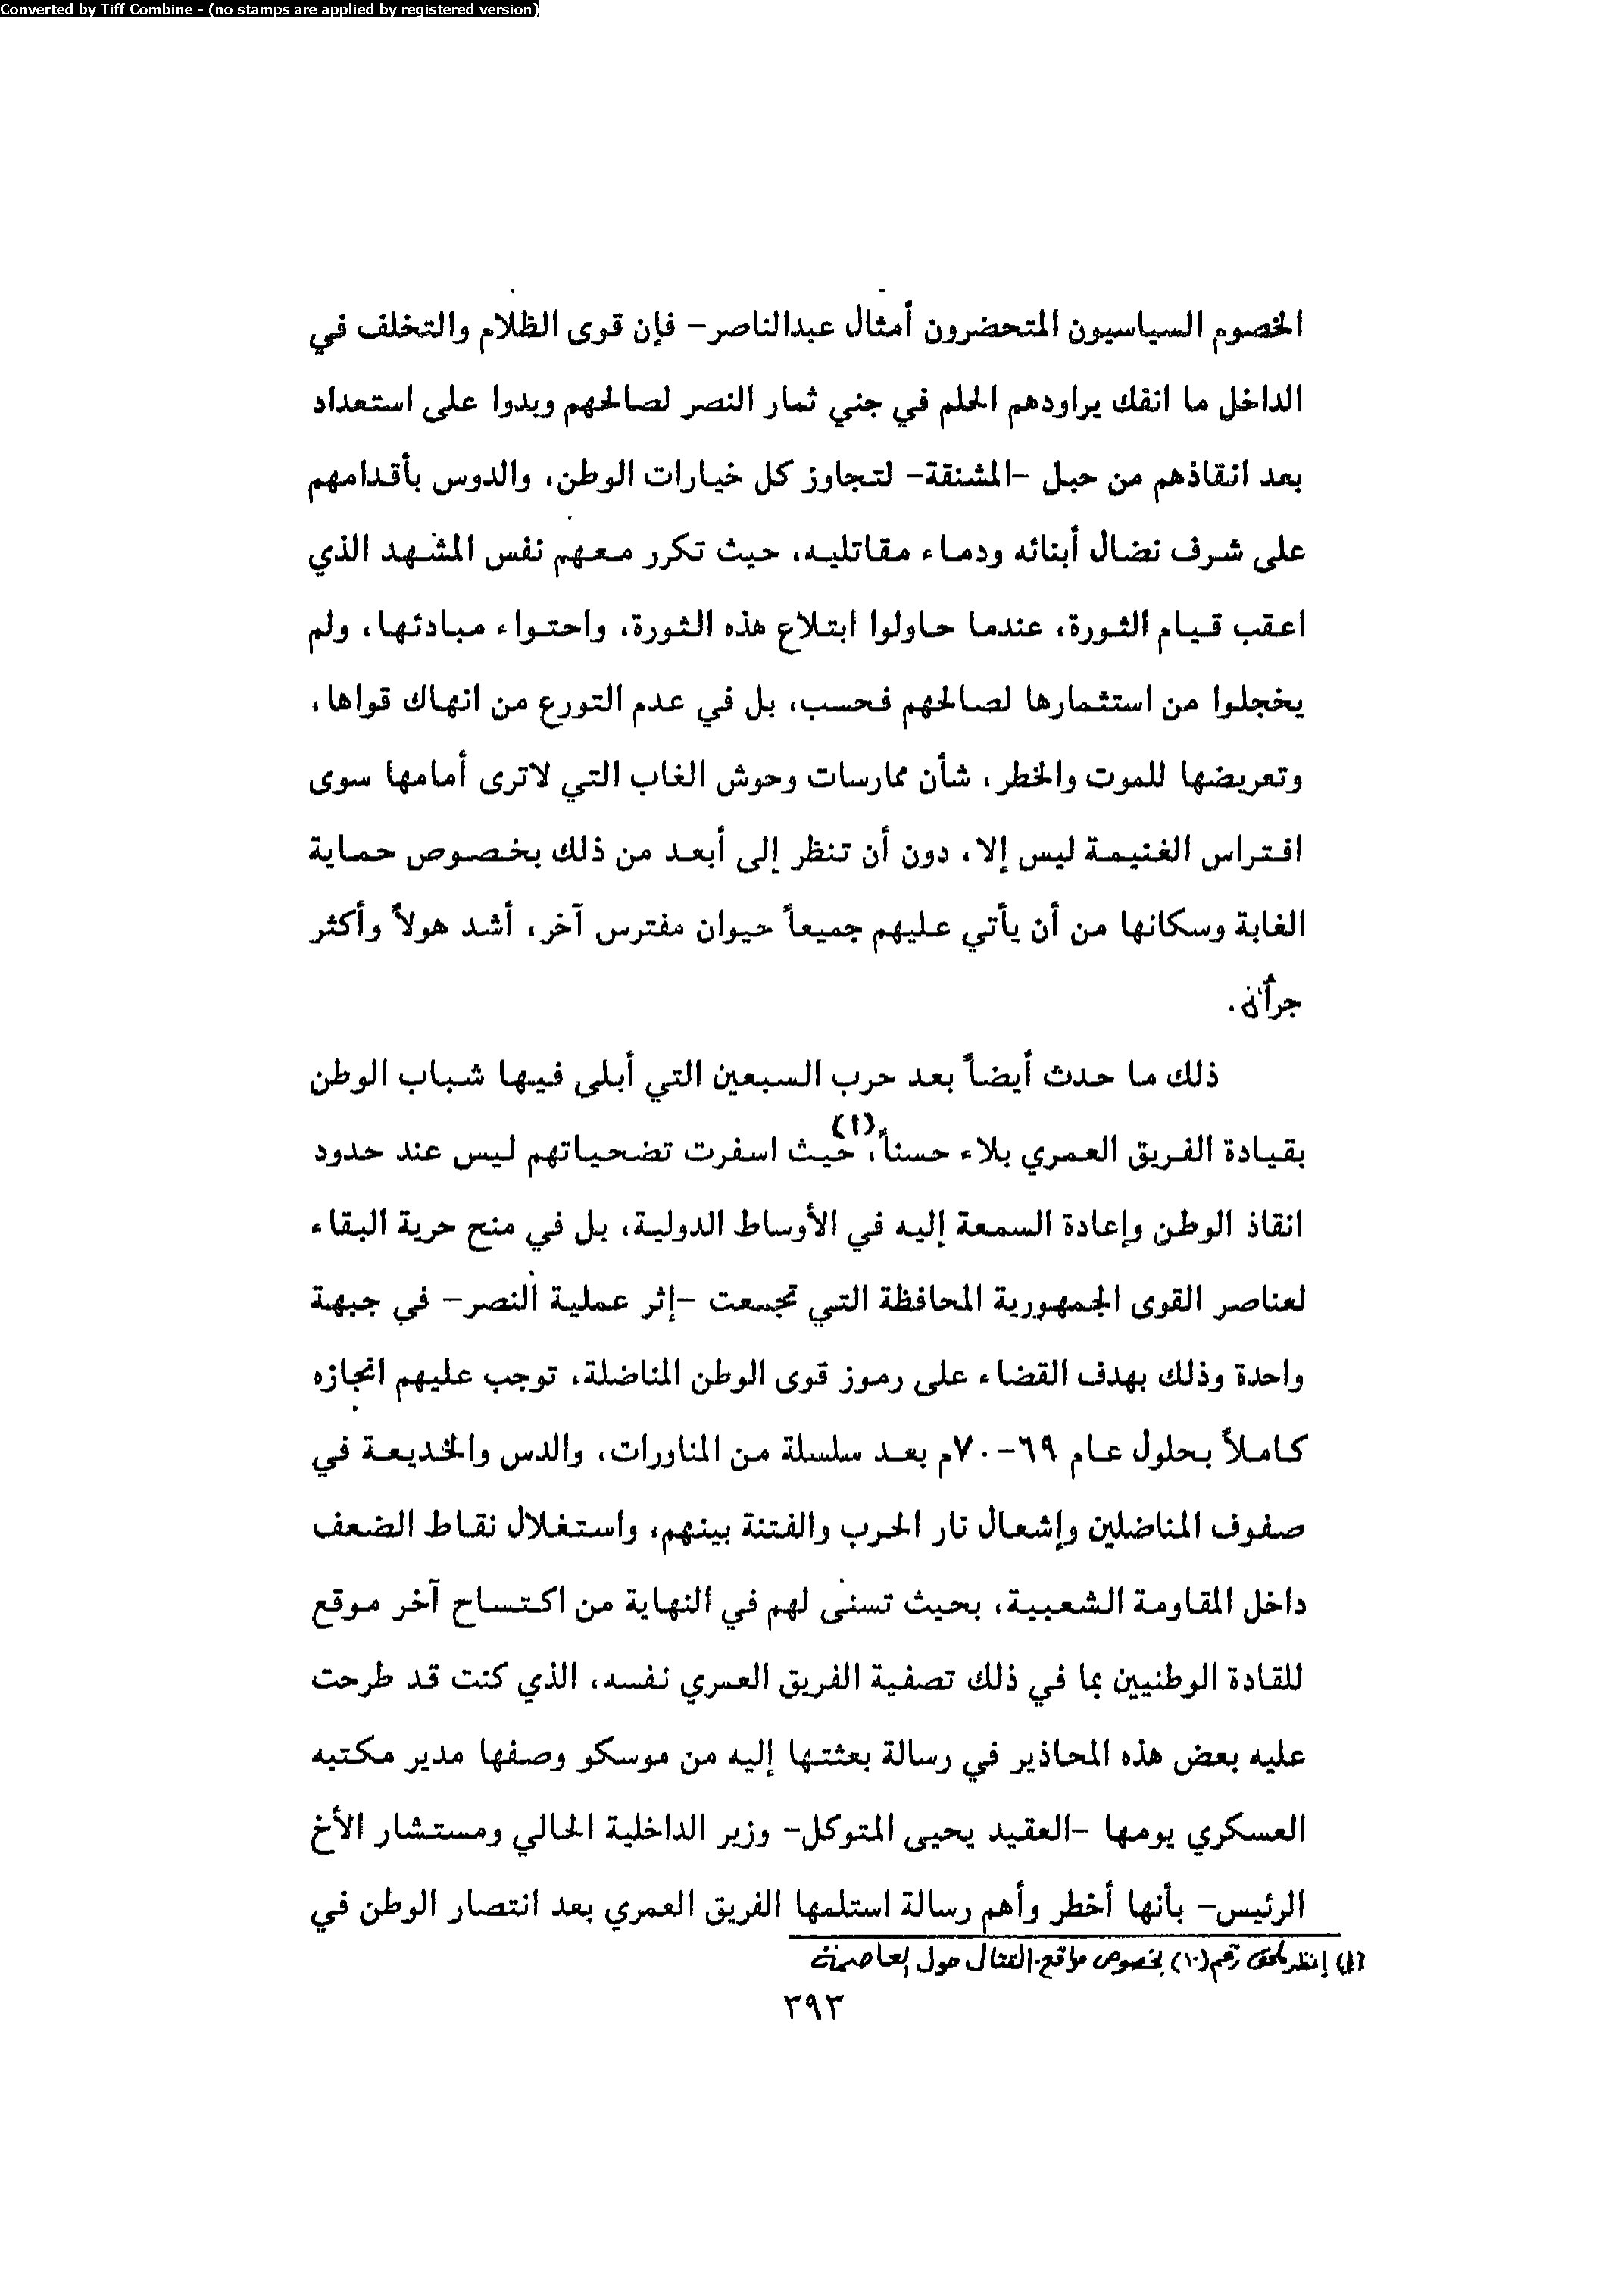 Converted by Tiff Combine - (no stamps are applied by registered version)
الخصوم السياسيون المتحضرون أمثال عبدالناصر- فإن قوى الظلام والتخلف في
الداخل ما انفك يراودهم الحلم في جني ثمار النصر لصالحهم وبدوا على استعداد
بعد انقاذهم من حبل -المشنقة- لتجاوز كل خيارات الوطن، والدوس بأقدامهم
على شرف نضال أبنائه ودماء مقاتليه، حيث تكرر معهم نفس المشهد الذي
اعقب قيام الثورة، عندما حاولوا ابتلاع هذه الثورة، واحتواء مبادئها، ولم
يخجلوا من استثمارها لصالحهم فحسب، بل في عدم التورع من انهاك قواها،
وتعريضها للموت والخطر، شأن ممارسات وحوش الغاب التي لاترى أمامها سوى
افتراس الغنيمة ليس إلا، دون أن تنظر إلى أبعد من ذلك بخصوص حماية
الغابة وسكانها من أن يأتي عليهم جميعاً حيوان مفترس آخر، أشد هولاً وأكثر
جرأة.
ذلك ما حدث أيضاً بعد حرب السبعين التي أبلى فيها شباب الوطن
بقيادة الفريق العمري بلاء حسناً،(١) حيث اسفرت تضحياتهم ليس عند حدود
انقاذ الوطن وإعادة السمعة إليه في الأوساط الدولية، بل في منح حرية البقاء
لعناصر القوى الجمهورية المحافظة التي تجمعت -إثر عملية النصر- في جبهة
واحدة وذلك بهدف القضاء على رموز قوى الوطن المناضلة، توجب عليهم انجازه
كاملاً بحلول عام ٦٩-٧٠م بعد سلسلة من المناورات، والدس والخديعة في
صفوف المناضلين وإشعال نار الحرب والفتنة بينهم، واستغلال نقاط الضعف
داخل المقاومة الشعبية، بحيث تسنى لهم في النهاية من اكتساح آخر موقع
للقادة الوطنيين بما في ذلك تصفية الفريق العمري نفسه، الذي كنت قد طرحت
عليه بعض هذه المحاذير في رسالة بعثتها إليه من موسكو وصفها مدير مكتبه
العسكري يومها -العقيد يحيى المتوكل- وزير الداخلية الحالي ومستشار الأخ
الرئيس- بأنها أخطر وأهم رسالة استلمها الفريق العمري بعد انتصار الوطن في
(١) إنظر ملحق رقم (١٠) بخصوص مواقع القتال حول العاصمة
٣٩٣